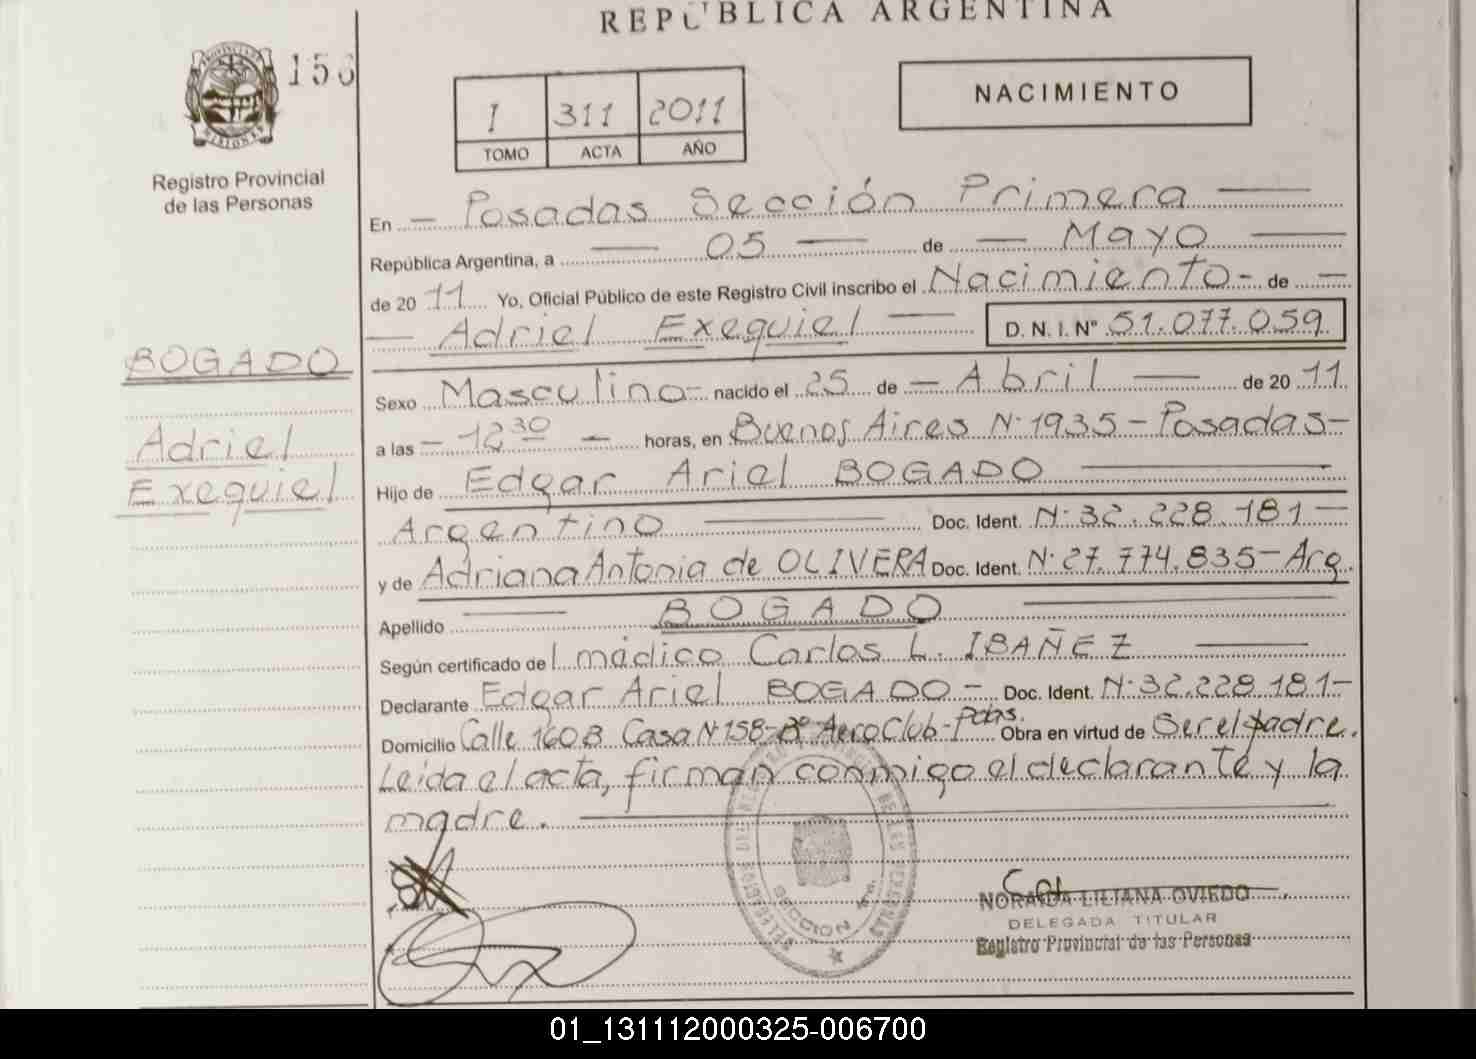 REPÚBLICA ARGENTINA
156
Registro Provincial
de las Personas
1 311 2011
TOMO ACTA AÑO
NACIMIENTO
En Posadas Sección Primera
República Argentina, a 05 de Mayo
de 2011 Yo, Oficial Público de este Registro Civil inscribo el Nacimiento - de
Adriel Exequiel D. N. I. Nº 51.077.059
BOGADO
Adriel
Exequiel
Sexo Masculino - nacido el 25 de Abril de 2011
a las 12 30 horas, en Buenos Aires Nº 1935 - Posadas -
Hijo de Edgar Ariel BOGADO
Argentino Doc. Ident. Nº 32.228.181 -
y de Adriana Antonia de OLIVERA Doc. Ident. Nº 27.774.835 - Arg.
Apellido BOGADO
Según certificado del médico Carlos L. IBAÑEZ
Declarante Edgar Ariel BOGADO - Doc. Ident. Nº 32.228.181 -
Domicilio Calle 160B Casa Nº 158 - Bº AeroClub - Pdas. Obra en virtud de Ser el padre.
Leída el acta, firman conmigo el declarante y la
madre.
SECCION 1ra.
NORAIDA LILIANA OVIEDO
DELEGADA TITULAR
Registro Provincial de las Personas
01_131112000325-006700